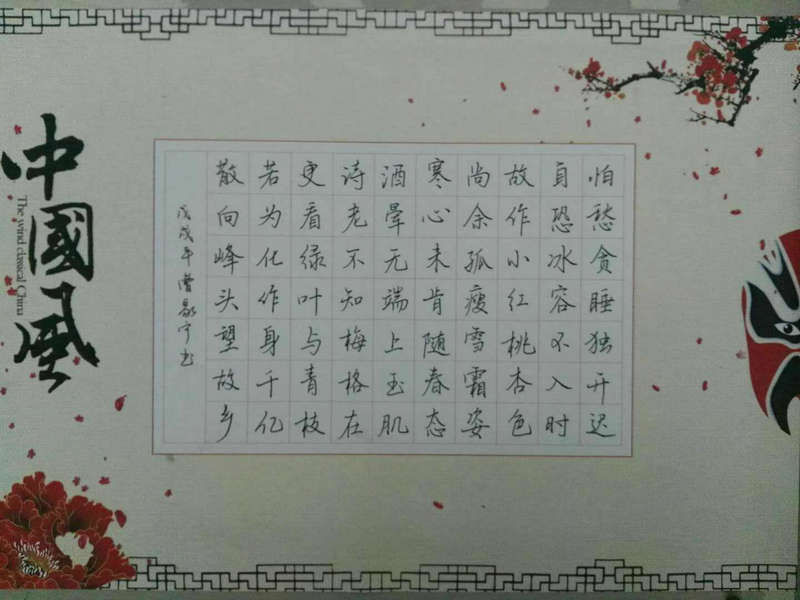 怕愁贪睡独开迟
自恐冰容不入时
故作小红桃杏色
尚余孤瘦雪霜姿
寒心未肯随春态
酒晕无端上玉肌
诗老不知梅格在
更看绿叶与青枝
若为化作身千亿
散向峰头望故乡
戊戌年曹宁书
中國风
The wind classical China